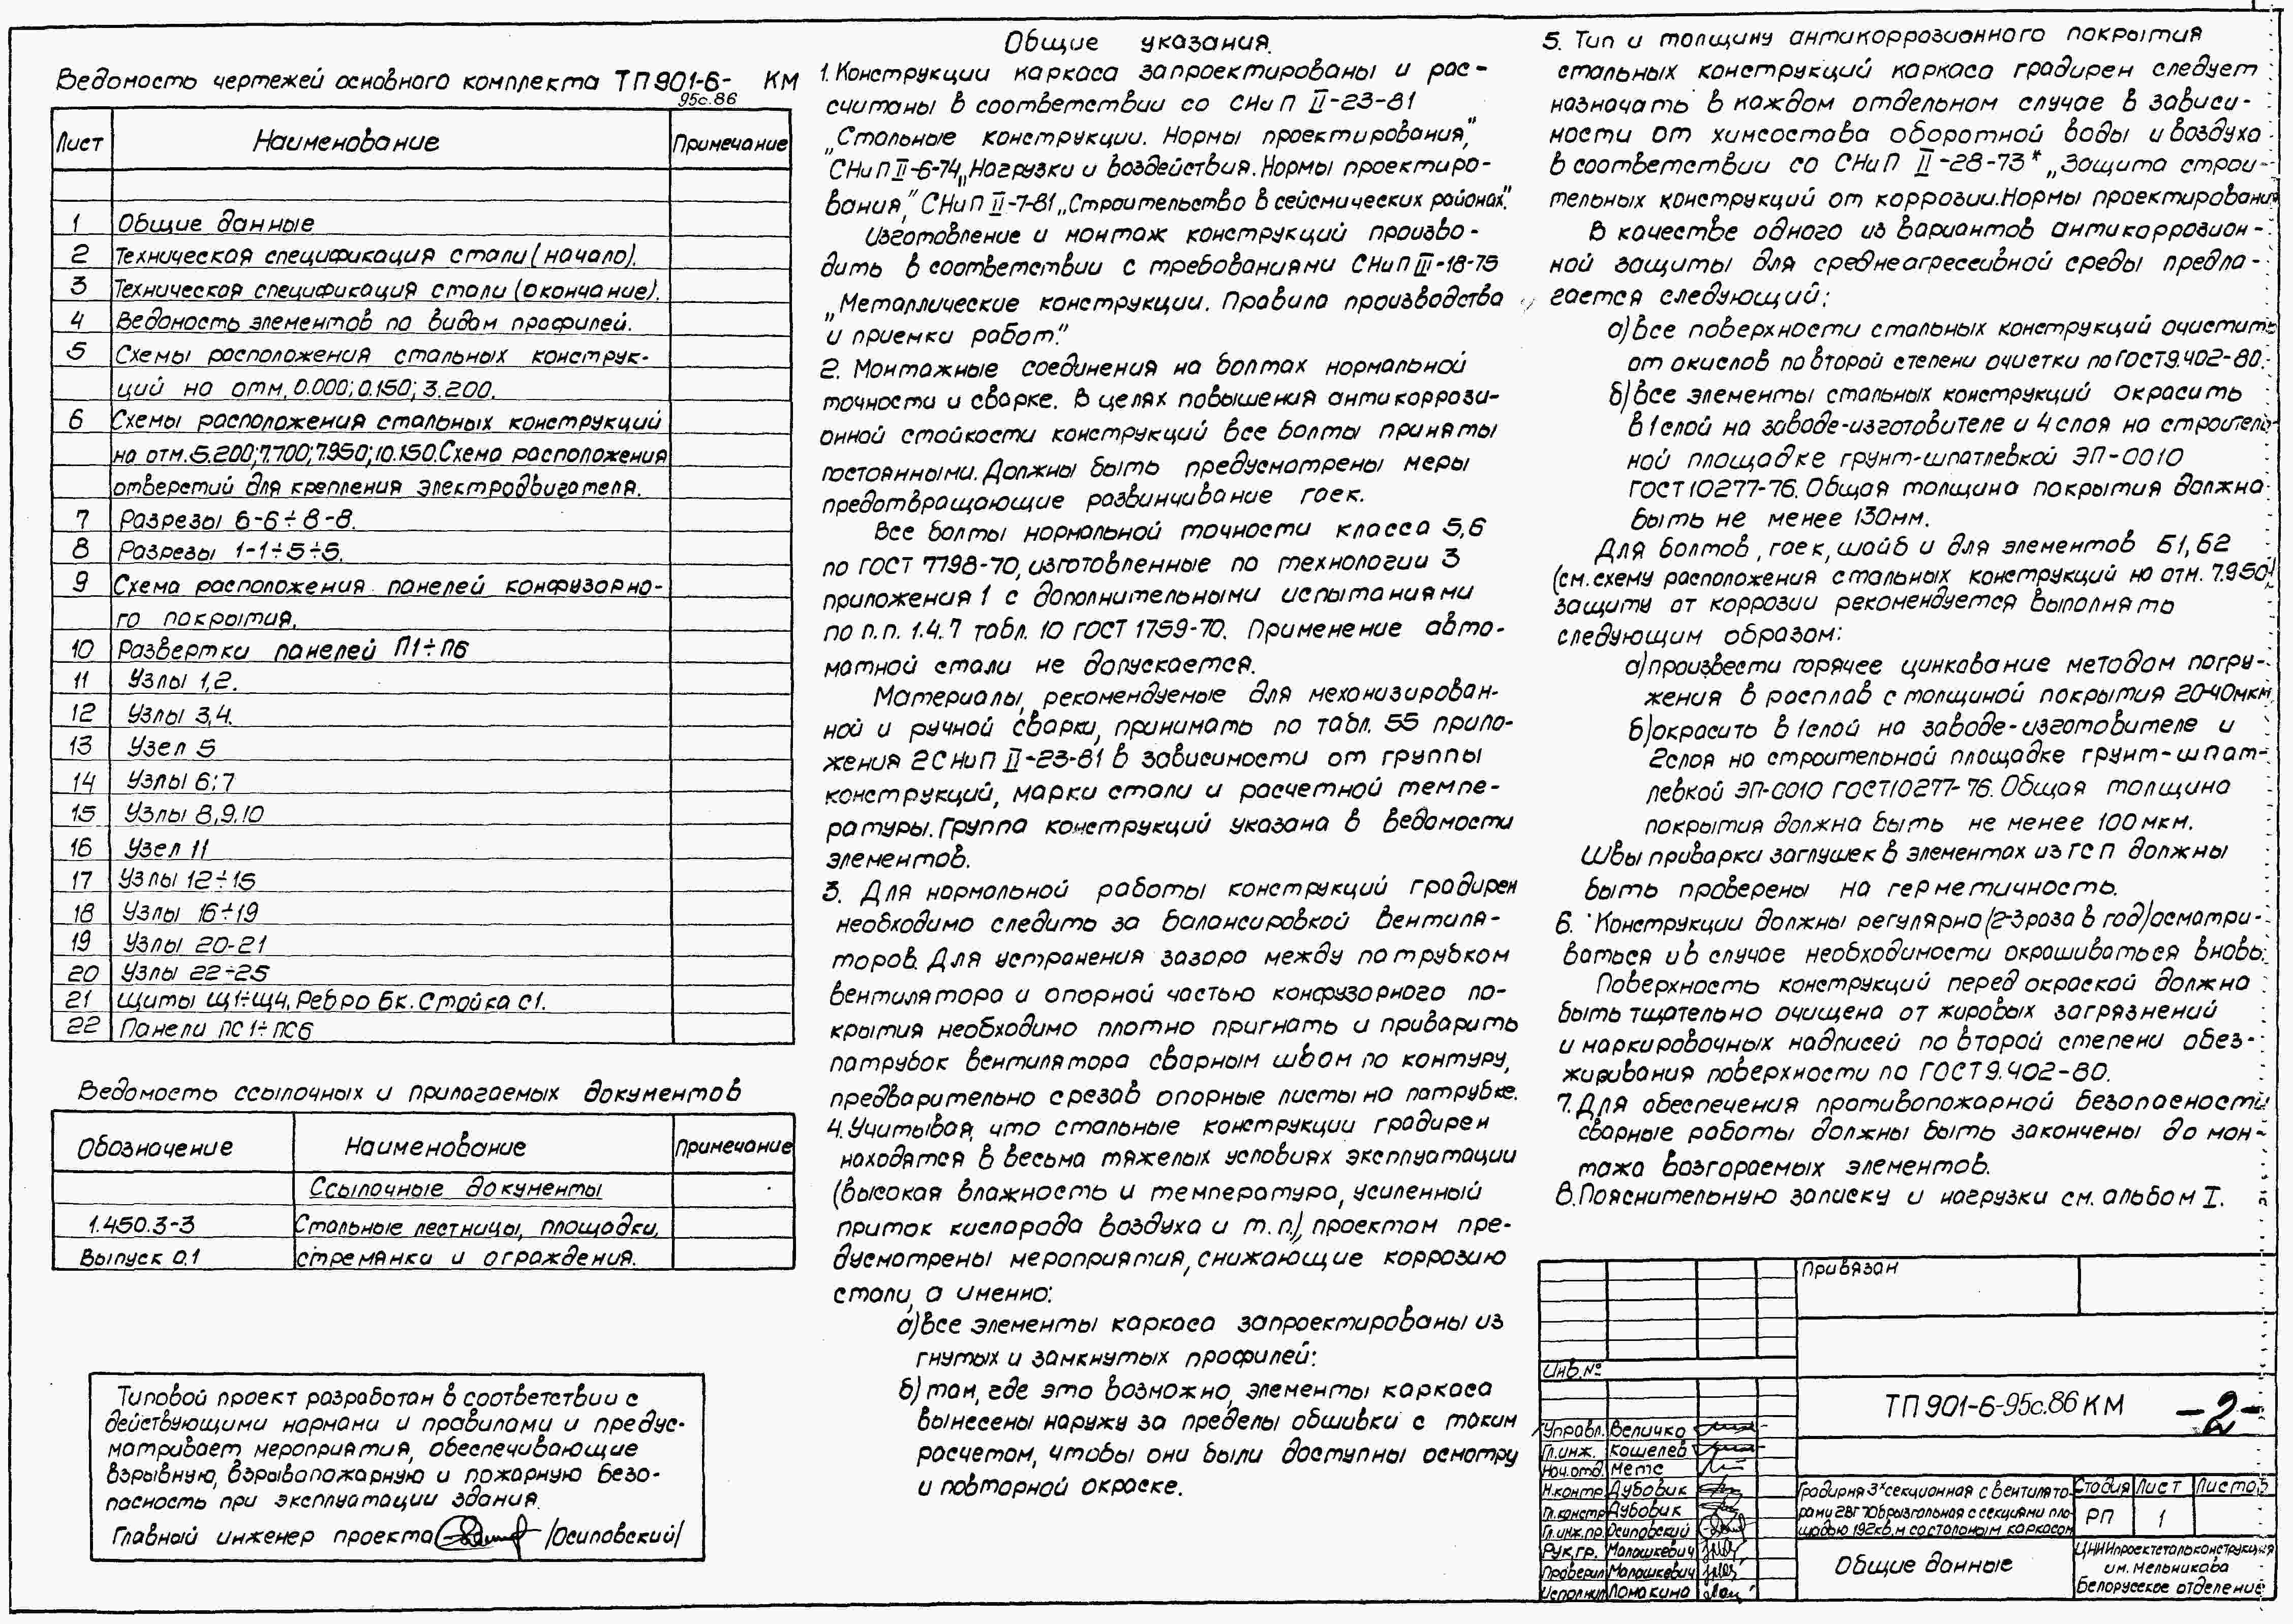 Ведомость чертежей основного комплекта ТП901-6- КМ
95с.86
Лист Наименование Примечание
1 Общие данные
2 Техническая спецификация стали (начало).
3 Техническая спецификация стали (окончание).
4 Ведомость элементов по видам профилей.
5 Схемы расположения стальных конструк-
ций на отм. 0.000; 0.150; 3.200.
6 Схемы расположения стальных конструкций
на отм. 5.200; 7.700; 7.950; 10.150. Схема расположения
отверстий для крепления электродвигателя.
7 Разрезы 6-6÷8-8.
8 Разрезы 1-1÷5÷5.
9 Схема расположения панелей конфузорно-
го покрытия.
10 Развертки панелей П1÷П6
11 Узлы 1,2.
12 Узлы 3,4.
13 Узел 5
14 Узлы 6; 7
15 Узлы 8,9,10
16 Узел 11
17 Узлы 12÷15
18 Узлы 16÷19
19 Узлы 20-21
20 Узлы 22÷25
21 Щиты Щ1÷Щ4. Ребро Бк. Стойка с1.
22 Панели ПС1÷ПС6
Ведомость ссылочных и прилагаемых документов
Обозначение Наименование Примечание
Ссылочные документы
1.450.3-3 Стальные лестницы, площадки,
Выпуск 0.1 стремянки и ограждения.
Типовой проект разработан в соответствии с
действующими нормами и правилами и предус-
матривает мероприятия, обеспечивающие
взрывную, взрывопожарную и пожарную безо-
пасность при эксплуатации здания.
Главный инженер проекта /Осиповский/
Общие указания.
1. Конструкции каркаса запроектированы и рас-
считаны в соответствии со СНиП II-23-81
„Стальные конструкции. Нормы проектирования",
СНиП II-6-74 „Нагрузки и воздействия. Нормы проектиро-
вания", СНиП II-7-81 „Строительство в сейсмических районах".
Изготовление и монтаж конструкций произво-
дить в соответствии с требованиями СНиП III-18-75
„Металлические конструкции. Правила производства
и приемки работ."
2. Монтажные соединения на болтах нормальной
точности и сварке. В целях повышения антикоррози-
онной стойкости конструкций все болты приняты
постоянными. Должны быть предусмотрены меры
предотвращающие развинчивание гаек.
Все болты нормальной точности класса 5,6
по ГОСТ 7798-70, изготовленные по технологии 3
приложения 1 с дополнительными испытаниями
по п.п. 1.4.7 табл. 10 ГОСТ 1759-70. Применение авто-
матной стали не допускается.
Материалы, рекомендуемые для механизирован-
ной и ручной сварки, принимать по табл. 55 прило-
жения 2 СНиП II-23-81 в зависимости от группы
конструкций, марки стали и расчетной темпе-
ратуры. Группа конструкций указана в ведомости
элементов.
3. Для нормальной работы конструкций градирен
необходимо следить за балансировкой вентиля-
торов. Для устранения зазора между патрубком
вентилятора и опорной частью конфузорного по-
крытия необходимо плотно пригнать и приварить
патрубок вентилятора сварным швом по контуру,
предварительно срезав опорные листы на патрубке.
4. Учитывая, что стальные конструкции градирен
находятся в весьма тяжелых условиях эксплуатации
(высокая влажность и температура, усиленный
приток кислорода воздуха и т.п.), проектом пре-
дусмотрены мероприятия, снижающие коррозию
стали, а именно:
а) все элементы каркаса запроектированы из
гнутых и замкнутых профилей:
б) там, где это возможно, элементы каркаса
вынесены наружу за пределы обшивки с таким
расчетом, чтобы они были доступны осмотру
и повторной окраске.
5. Тип и толщину антикоррозионного покрытия
стальных конструкций каркаса градирен следует
назначать в каждом отдельном случае в зависи-
мости от химсостава оборотной воды и воздуха
в соответствии со СНиП II-28-73* „Защита строи-
тельных конструкций от коррозии. Нормы проектирования
В качестве одного из вариантов антикоррозион-
ной защиты для среднеагрессивной среды предла-
гается следующий:
а) все поверхности стальных конструкций очистить
от окислов по второй степени очистки по ГОСТ 9.402-80.
б) все элементы стальных конструкций окрасить
в 1 слой на заводе-изготовителе и 4 слоя на строитель-
ной площадке грунт-шпатлевкой ЭП-0010
ГОСТ 10277-76. Общая толщина покрытия должна
быть не менее 130мм.
Для болтов, гаек, шайб и для элементов Б1, Б2
(см. схему расположения стальных конструкций на отм. 7.950)
защиту от коррозии рекомендуется выполнять
следующим образом:
а) произвести горячее цинкование методом погру-
жения в расплав с толщиной покрытия 20-40мкм,
б) окрасить в 1 слой на заводе-изготовителе и
2 слоя на строительной площадке грунт-шпат-
левкой ЭП-0010 ГОСТ 10277-76. Общая толщина
покрытия должна быть не менее 100 мкм.
Швы приварки заглушек в элементах из ГСП должны
быть проверены на герметичность.
6. Конструкции должны регулярно (2-3 раза в год) осматри-
ваться и в случае необходимости окрашиваться вновь.
Поверхность конструкций перед окраской должна
быть тщательно очищена от жировых загрязнений
и маркировочных надписей по второй степени обез-
жиривания поверхности по ГОСТ 9.402-80.
7. Для обеспечения противопожарной безопасности
сварные работы должны быть закончены до мон-
тажа возгораемых элементов.
8. Пояснительную записку и нагрузки см. альбом I.
Привязан
Инв. №
ТП 901-6-95с.86 КМ -2-
Управл. Величко
Гл. инж. Кошелев
Нач. отд. Метс
Н.контр Дубовик
Гл. констр Дубовик
Гл. инж. пр. Осиповский
Рук. гр. Малашкевич
Проверил Малашкевич
Исполнил Ломакина
Градирня 3х секционная с вентилято-
рами 2ВГ 70 брызгальная с секциями пло-
щадью 192кв.м со стальным каркасом
Стадия Лист Листов
РП 1
Общие данные
ЦНИИпроектстальконструкция
им. Мельникова
Белорусское отделение